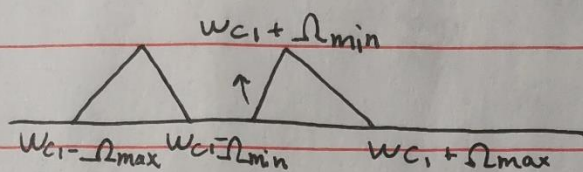 Wc₁ + Ωmin
Wc₁ - Ωmax Wc₁ - Ωmin Wc₁ + Ωmax